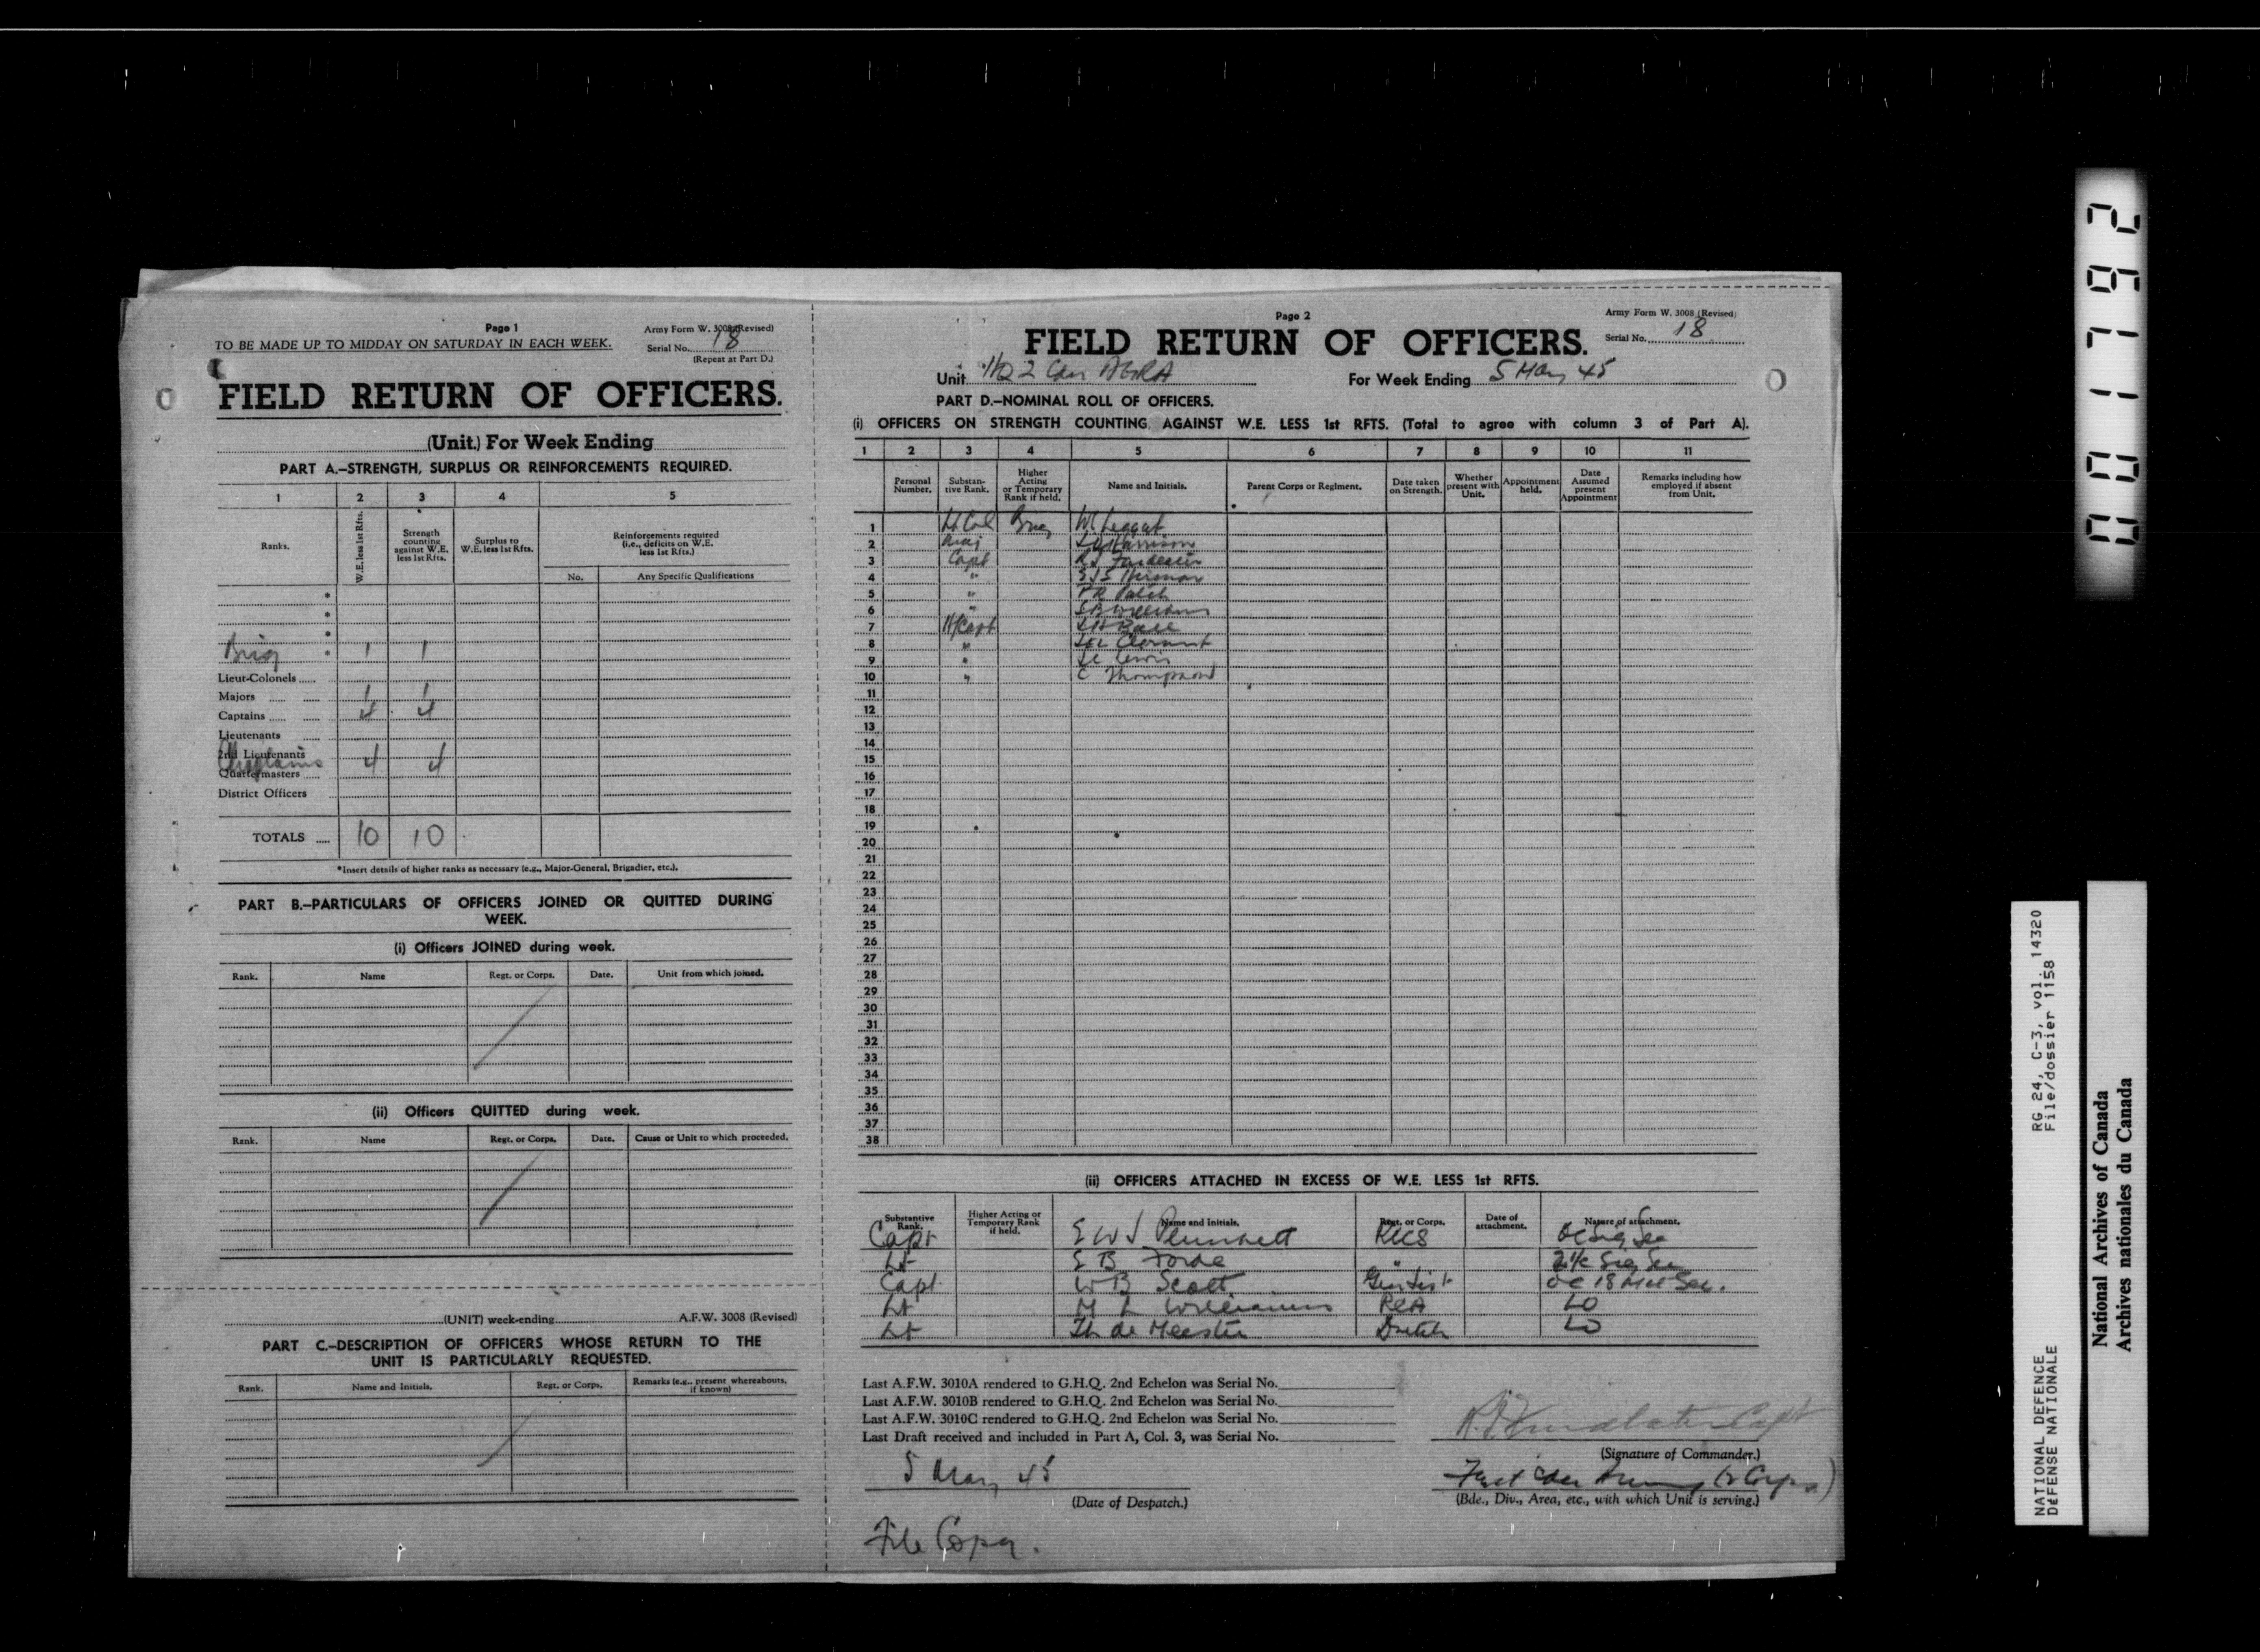 Page 1
Army Form W. 3008 (Revised)
TO BE MADE UP TO MIDDAY ON SATURDAY IN EACH WEEK.
Serial No. 18
(Repeat at Part D.)
FIELD RETURN OF OFFICERS.
(Unit.) For Week Ending
PART A.—STRENGTH, SURPLUS OR REINFORCEMENTS REQUIRED.
1 2 3 4 5
Ranks.
W.E. less 1st Rfts.
Strength counting against W.E. less 1st Rfts.
Surplus to W.E. less 1st Rfts.
Reinforcements required (i.e., deficits on W.E. less 1st Rfts.)
No. Any Specific Qualifications
*
*
*
Brig * 1 1
Lieut-Colonels
Majors 1 1
Captains 4 4
Lieutenants
2nd Lieutenants
Chaplains 4 4
Quartermasters
District Officers
TOTALS 10 10
*Insert details of higher ranks as necessary (e.g., Major-General, Brigadier, etc.).
PART B.—PARTICULARS OF OFFICERS JOINED OR QUITTED DURING
WEEK.
(i) Officers JOINED during week.
Rank. Name Regt. or Corps. Date. Unit from which joined.
(ii) Officers QUITTED during week.
Rank. Name Regt. or Corps. Date. Cause or Unit to which proceeded.
(UNIT) week-ending A.F.W. 3008 (Revised)
PART C.—DESCRIPTION OF OFFICERS WHOSE RETURN TO THE
UNIT IS PARTICULARLY REQUESTED.
Rank. Name and Initials. Regt. or Corps. Remarks (e.g., present whereabouts, if known)
Page 2
Army Form W. 3008 (Revised)
Serial No. 18
FIELD RETURN OF OFFICERS.
Unit HQ 2 Cdn AGRA For Week Ending 5 May 45
PART D.—NOMINAL ROLL OF OFFICERS.
(i) OFFICERS ON STRENGTH COUNTING AGAINST W.E. LESS 1st RFTS. (Total to agree with column 3 of Part A).
1 2 3 4 5 6 7 8 9 10 11
Personal Number.
Substantive Rank.
Higher Acting or Temporary Rank if held.
Name and Initials.
Parent Corps or Regiment.
Date taken on Strength.
Whether present with Unit.
Appointment held.
Date Assumed present Appointment
Remarks including how employed if absent from Unit.
1 Lt Col Brig Leggat
2 Maj Harrison
3 Capt
4 "
5 "
6 " Williams
7 H/Capt
8 "
9 " Lewis
10 " C Thompson
11
12
13
14
15
16
17
18
19
20
21
22
23
24
25
26
27
28
29
30
31
32
33
34
35
36
37
38
(ii) OFFICERS ATTACHED IN EXCESS OF W.E. LESS 1st RFTS.
Substantive Rank. Higher Acting or Temporary Rank if held. Name and Initials. Regt. or Corps. Date of attachment. Nature of attachment.
Capt E W J Plunkett OC Sig Sec
Lt E B Forde " 2 i/c Sig Sec
Capt W B Scott OC 18 Met Sec.
Lt M L Williams RCA LO
Lt Th de Meester Dutch LO
Last A.F.W. 3010A rendered to G.H.Q. 2nd Echelon was Serial No.
Last A.F.W. 3010B rendered to G.H.Q. 2nd Echelon was Serial No.
Last A.F.W. 3010C rendered to G.H.Q. 2nd Echelon was Serial No.
Last Draft received and included in Part A, Col. 3, was Serial No.
Capt
(Signature of Commander.)
5 May 45
First Cdn Army (2 Corps)
(Date of Despatch.)
(Bde., Div., Area, etc., with which Unit is serving.)
File Copy.
001792
NATIONAL DEFENCE
DÉFENSE NATIONALE
RG 24, C-3, vol. 14320
File/dossier 1158
National Archives of Canada
Archives nationales du Canada